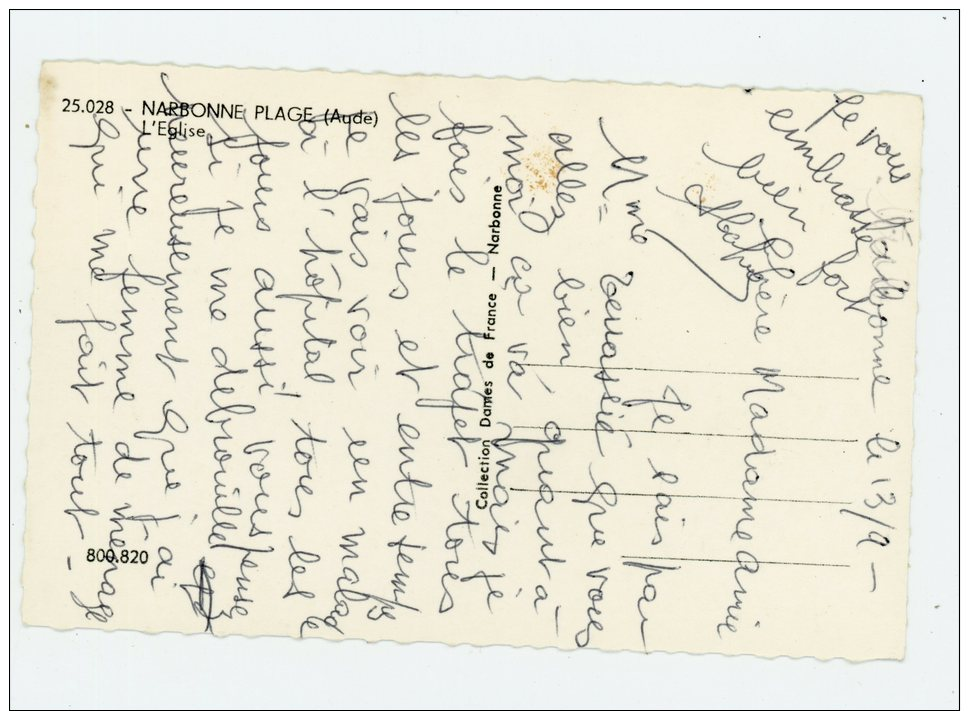 25.028 - NARBONNE PLAGE (Aude)
L'Eglise
Collection Dames de France — Narbonne
800.820
Narbonne le 13/9 -
Chère Madame amie
Je sais par
Mme que vous
allez bien quant à
moi ça va mais je
fais le trajet tous
les jours et entre temps
Je vais voir en malad
à l'hôpital tous les
jours aussi vous pensez
si Je me debrouille
heureusement que J'ai
une femme de menage
qui me fait tout -
Je vous
embrasse
bien fort